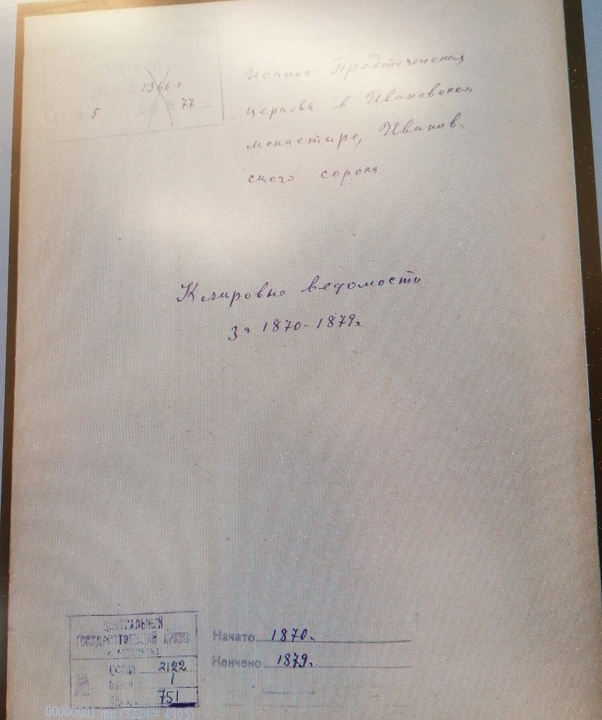 1366-1
5 77
Иоанно Предтеченская
церковь в Ивановском
монастыре, Иванов-
ского сорока
Клировые ведомости
за 1870-1879г.
ЦЕНТРАЛЬНЫЙ
ГОСУДАРСТВЕННЫЙ АРХИВ
2122
1
751
Начато 1870г.
Кончено 1879г.